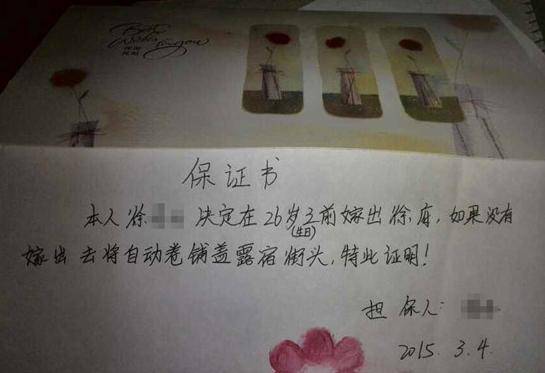 Best
Wishes
for you
保证书
本人徐 决定在26岁之前嫁出徐府,如果没有
(生日)
嫁出去将自动卷铺盖露宿街头,特此证明!
担保人:
2015.3.4